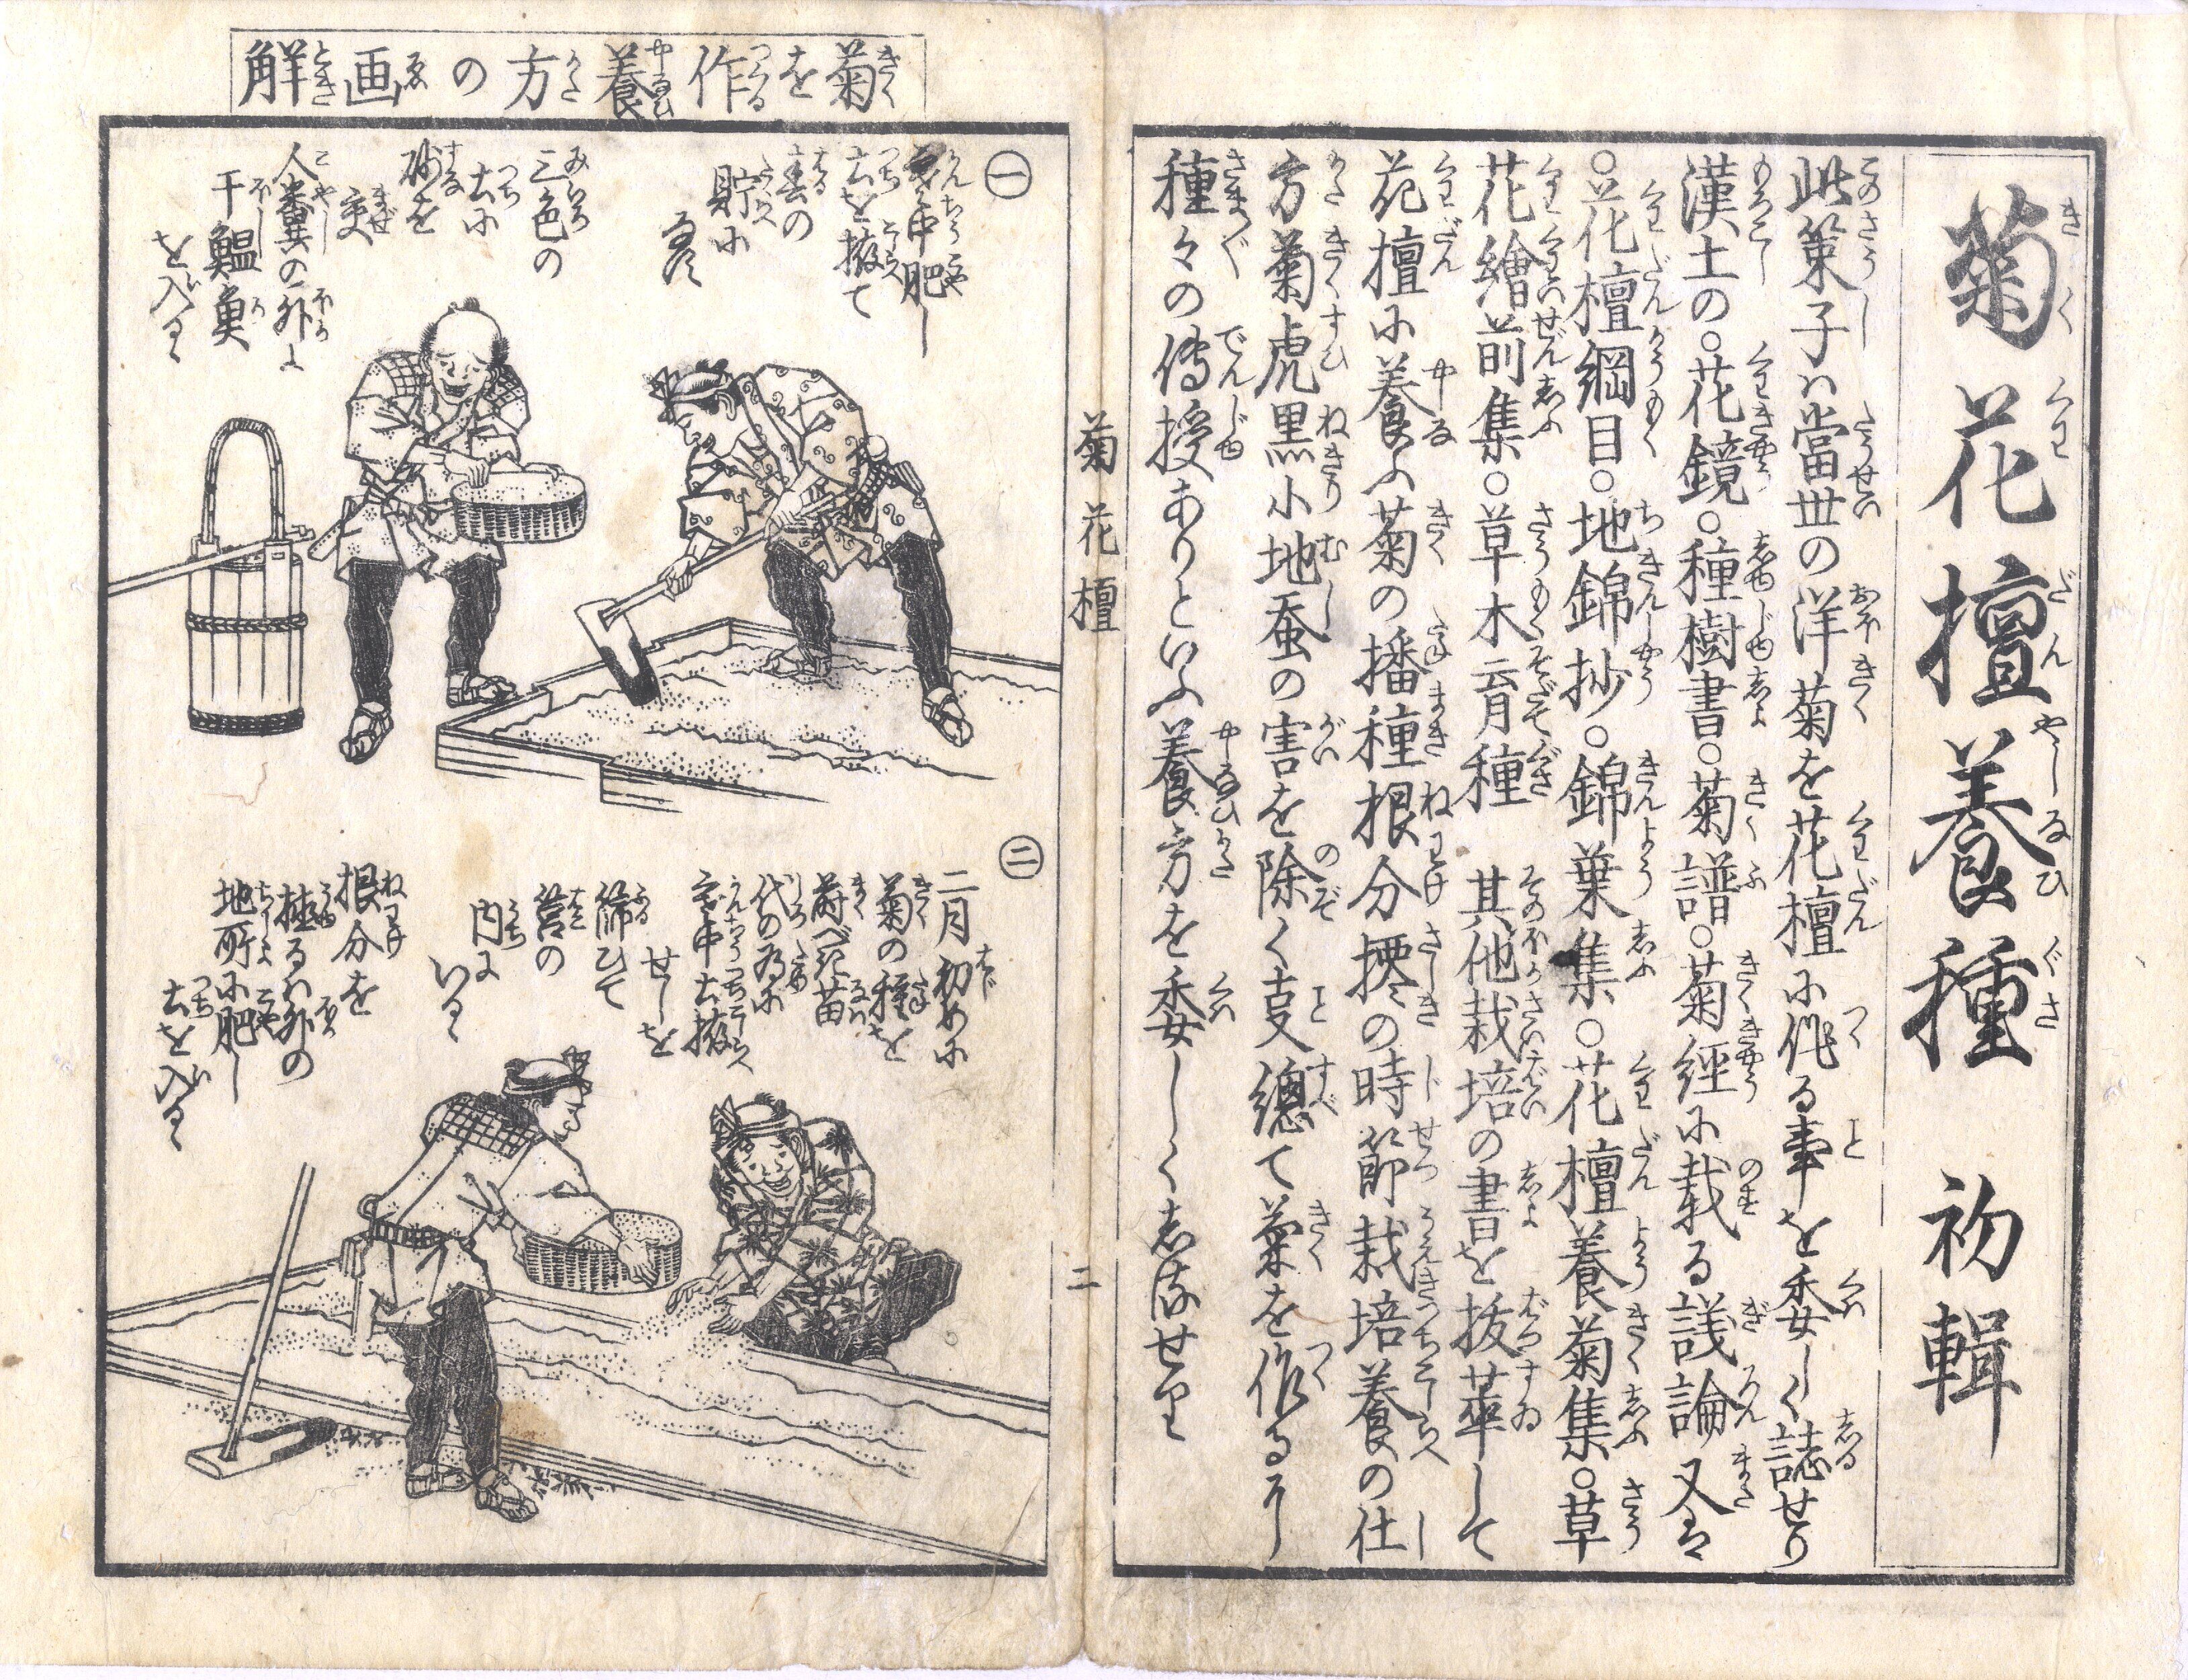 菊花檀養種 初輯
此策子ハ當世の洋菊を花檀に作る事を委しく誌せり
漢土の○花鏡○種樹書○菊譜○菊經に載る議論又ハ
○花檀綱目○地錦抄○錦葉集○花檀養菊集○草
花繪前集○草木育種 其他栽培の書を抜萃して
花檀に養ふ菊の播種根分揷の時節栽培養の仕
方菊虎黒小地蚕の害を除く㕝總て菊を作るより
種々の傳授ありといふ養方を委しくしるせり
菊花檀
二
菊を作養方の画解
一
寒中肥し
土を撥て
春の
貯に
る
三色の
土に
砂を
交
人糞の外に
干鰮魚
を入るゝ
二
二月初めに
菊の種を
蒔べき苗
代の為に
寒中土撥
せしを
篩ひて
筥の
内に
いるゝ
根分を
植るハ外の
地所に肥し
土を入るゝ